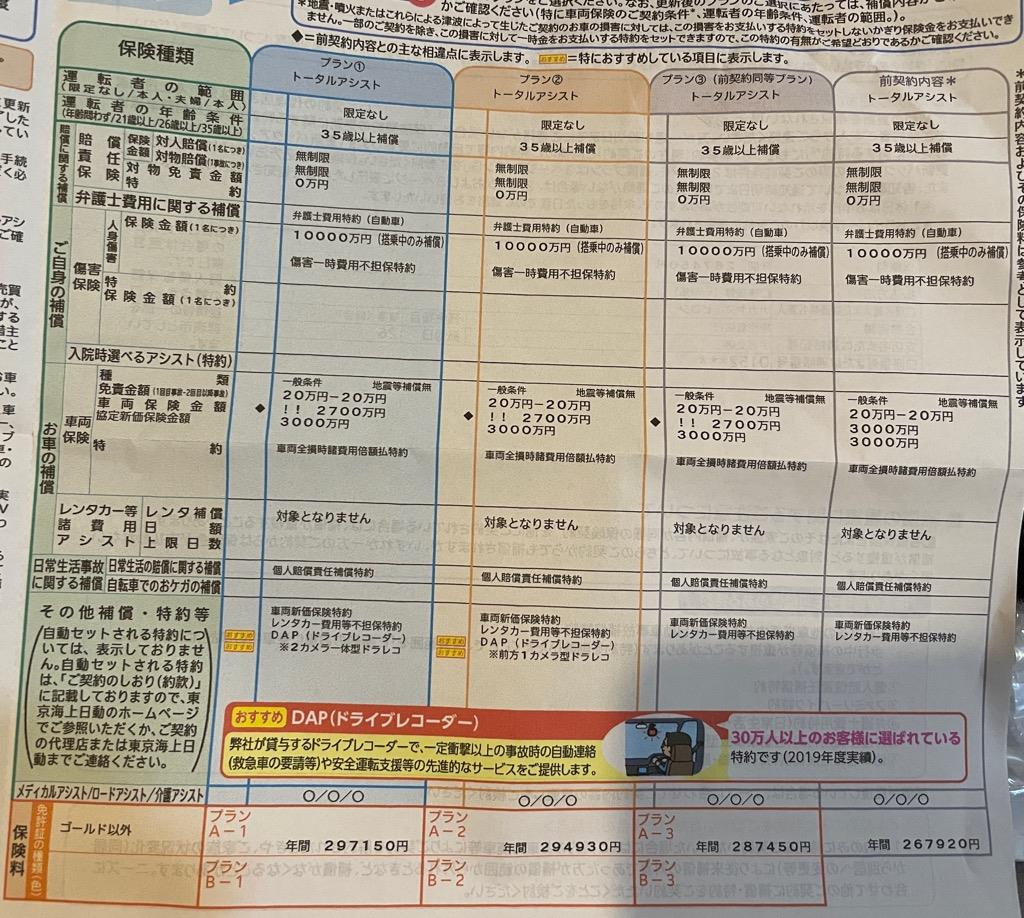 をご選択ください。なお、更新後のプランのご選択にあたっては、補償内容が
かご確認ください(特に車両保険のご契約条件*、運転者の年齢条件、運転者の範囲。)。
*地震・噴火またはこれらによる津波によって生じたご契約のお車の損害に対しては、この損害をお支払いする特約をセットしないかぎり保険金をお支払いでき
ません。一部のご契約を除き、この損害に対して一時金をお支払いする特約をセットできますので、この特約の有無がご希望どおりであるかご確認ください。
◆=前契約内容との主な相違点に表示します。 おすすめ=特におすすめしている項目に表示します。
保険種類
プラン①
トータルアシスト
プラン②
トータルアシスト
プラン③(前契約同等プラン)
トータルアシスト
前契約内容*
トータルアシスト
運転者の範囲
(限定なし/本人・夫婦/本人)
限定なし
限定なし
限定なし
限定なし
運転者の年齢条件
(年齢問わず/21歳以上/26歳以上/35歳以上)
35歳以上補償
35歳以上補償
35歳以上補償
35歳以上補償
賠償に関する補償
賠償責任保険
保険金額
対人賠償(1名につき)
対物賠償(1事故につき)
対物免責金額
特約
無制限
無制限
0万円
無制限
無制限
0万円
無制限
無制限
0万円
無制限
無制限
0万円
弁護士費用に関する補償
弁護士費用特約(自動車)
弁護士費用特約(自動車)
弁護士費用特約(自動車)
弁護士費用特約(自動車)
ご自身の補償
傷害保険
人身傷害
保険金額(1名につき)
10000万円(搭乗中のみ補償)
10000万円(搭乗中のみ補償)
10000万円(搭乗中のみ補償)
10000万円(搭乗中のみ補償)
特約
傷害一時費用不担保特約
傷害一時費用不担保特約
傷害一時費用不担保特約
傷害一時費用不担保特約
保険金額(1名につき)
入院時選べるアシスト(特約)
お車の補償
車両保険
種類
免責金額(1回目事故-2回目以降事故)
車両保険金額
協定新価保険金額
特約
◆
一般条件 地震等補償無
20万円-20万円
!! 2700万円
3000万円
車両全損時諸費用倍額払特約
◆
一般条件 地震等補償無
20万円-20万円
!! 2700万円
3000万円
車両全損時諸費用倍額払特約
◆
一般条件 地震等補償無
20万円-20万円
!! 2700万円
3000万円
車両全損時諸費用倍額払特約
一般条件 地震等補償無
20万円-20万円
3000万円
3000万円
車両全損時諸費用倍額払特約
レンタカー等諸費用アシスト
レンタカー補償
日額
上限日数
対象となりません
対象となりません
対象となりません
対象となりません
日常生活事故に関する補償
日常生活の賠償に関する補償
自転車でのおケガの補償
個人賠償責任補償特約
個人賠償責任補償特約
個人賠償責任補償特約
個人賠償責任補償特約
その他補償・特約等
自動セットされる特約につ
いては、表示しておりませ
ん。自動セットされる特約
は、「ご契約のしおり(約款)」
に記載しておりますので、東
京海上日動のホームページ
でご参照いただくか、ご契約
の代理店または東京海上日
動までご連絡ください。
おすすめ
おすすめ
車両新価保険特約
レンタカー費用等不担保特約
DAP(ドライブレコーダー)
※2カメラ一体型ドラレコ
おすすめ
おすすめ
車両新価保険特約
レンタカー費用等不担保特約
DAP(ドライブレコーダー)
※前方1カメラ型ドラレコ
車両新価保険特約
レンタカー費用等不担保特約
車両新価保険特約
レンタカー費用等不担保特約
おすすめ DAP(ドライブレコーダー)
弊社が貸与するドライブレコーダーで、一定衝撃以上の事故時の自動連絡
(救急車の要請等)や安全運転支援等の先進的なサービスをご提供します。
30万人以上のお客様に選ばれている
特約です(2019年度実績)。
メディカルアシスト/ロードアシスト/介護アシスト
○/○/○
○/○/○
○/○/○
○/○/○
保険料
免許証の種類(色)
ゴールド以外
プラン
A-1
年間 297150円
プラン
A-2
年間 294930円
プラン
A-3
年間 287450円
年間 267920円
プラン
B-1
プラン
B-2
プラン
B-3
*前契約内容およびその保険料は参考として表示しています。